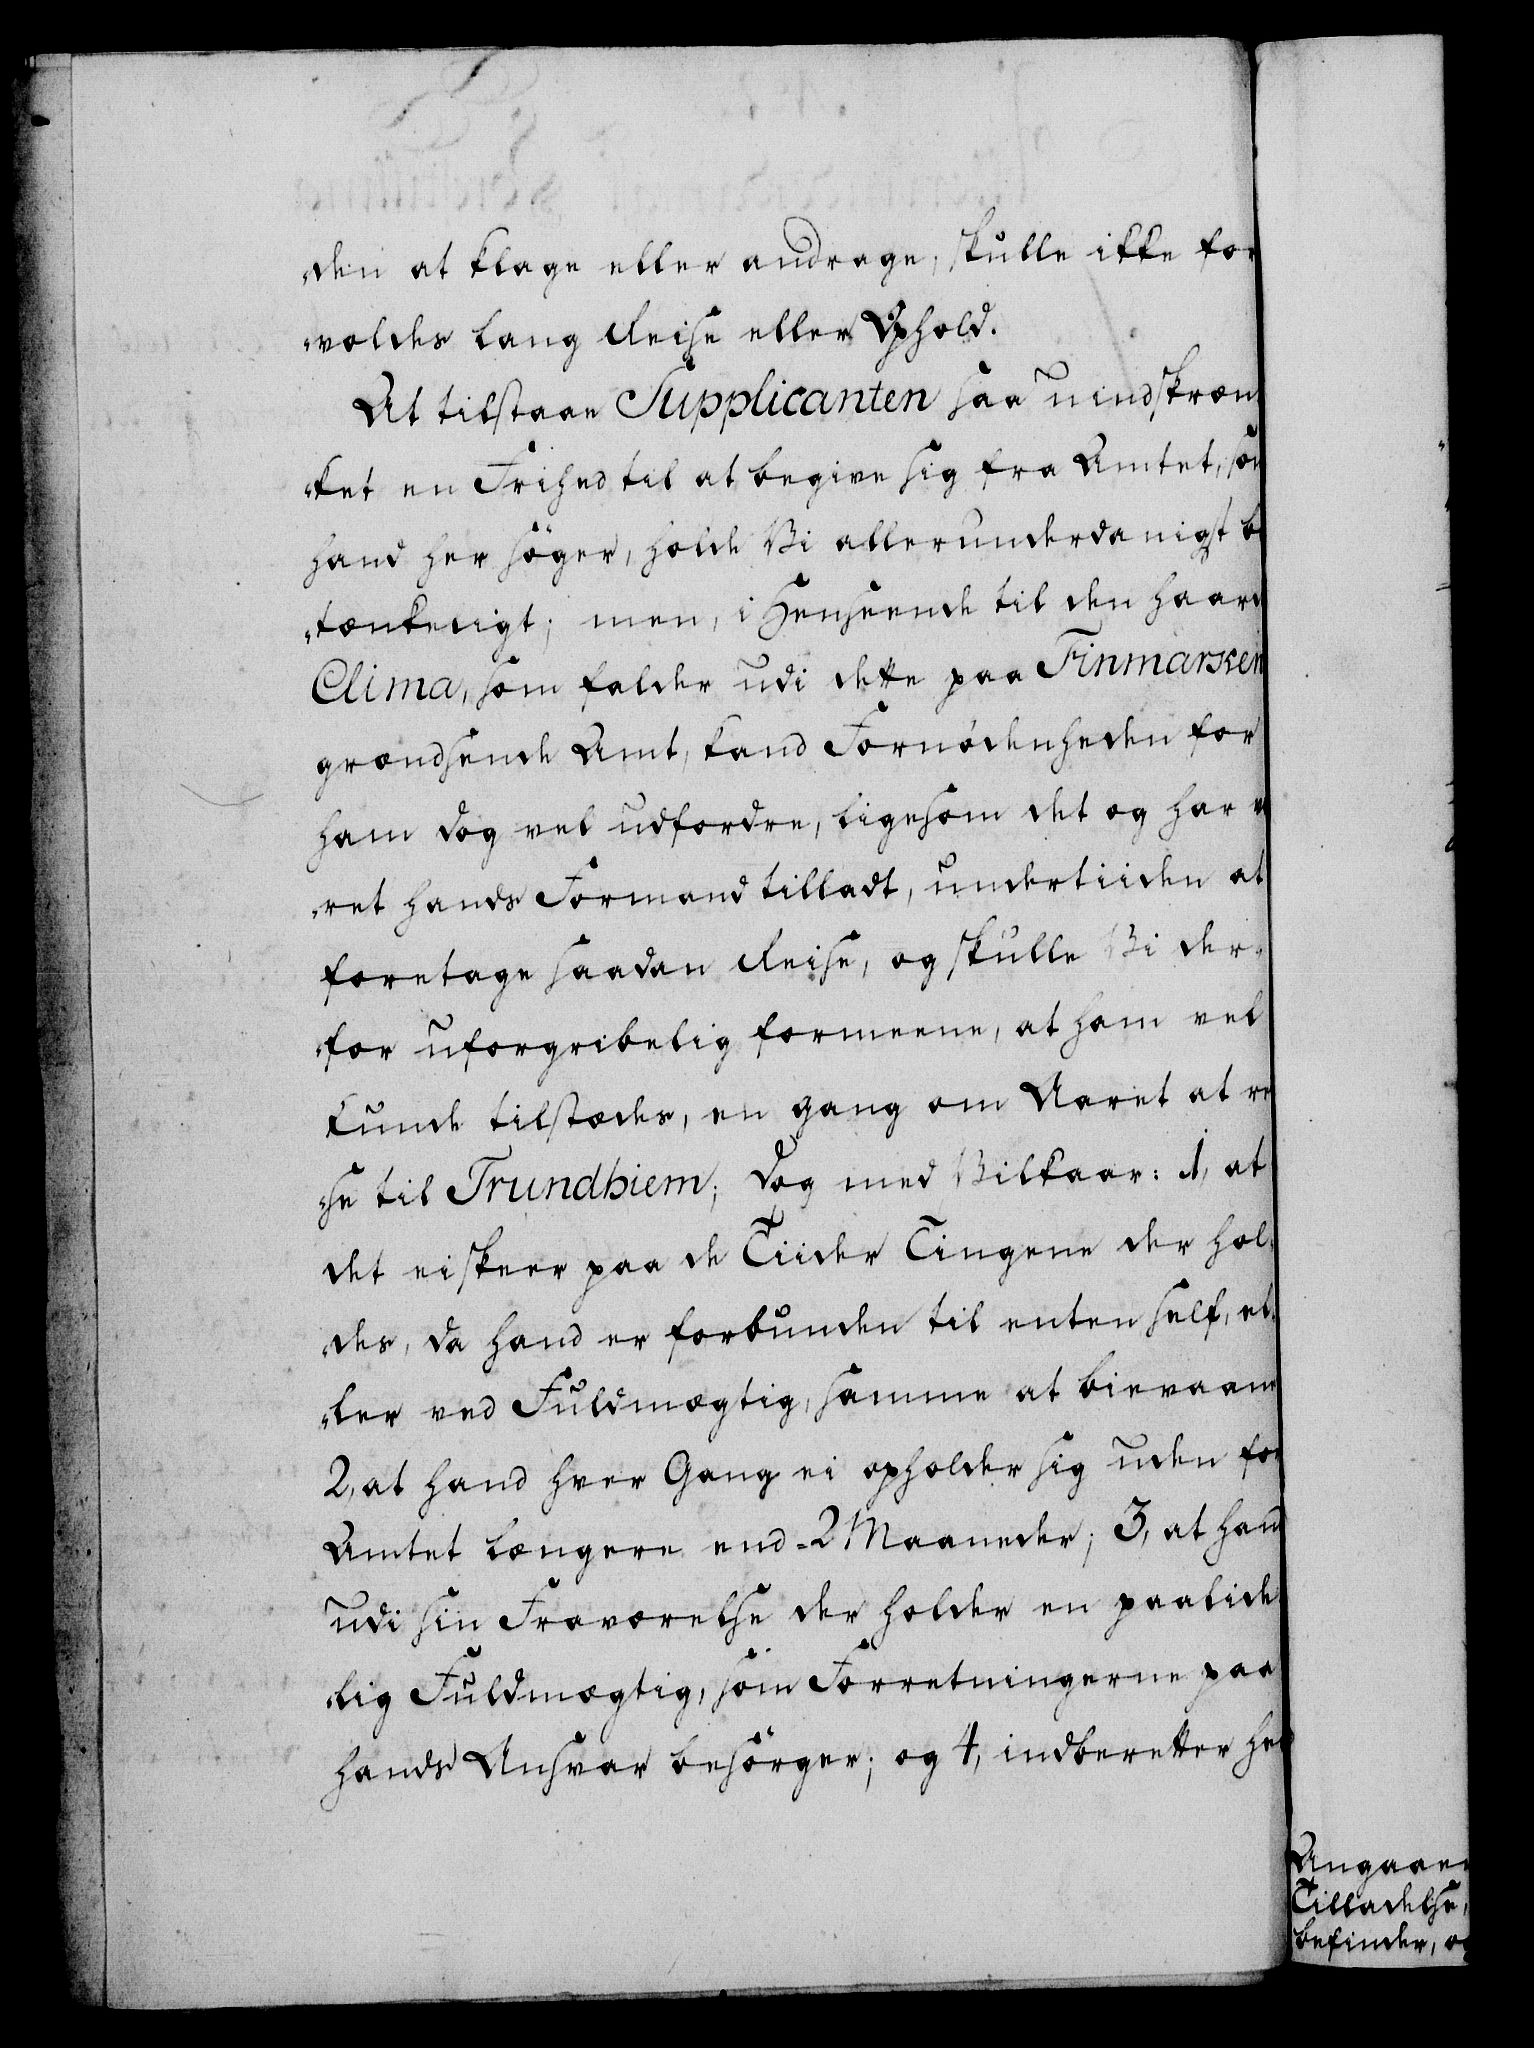 den at klage eller andrage, skulle ikke for
voldes lang Reise eller Ophold.
At tilstaae Supplicanten saa uindskræn
ket en Frihed til at begive sig fra Amtet, som
hand her söger, holde Vi allerunderdanigst be
tænkeligt; men, i Henseende til den haard
Clima, som falder udi dette paa Finmarken
grændsende Amt, kand Fornødenheden for
ham dog vel udfordre, ligesom det og har v
ret hands Formand tilladt, undertiiden at
foretage saadan Reise, og skulle Vi der-
for uforgribelig formeene, at ham vel
kunde tilstædes, en gang om Aaret at re
se til Trundhiem; dog med Vilkaar: 1, at
det ei skeer paa de Tiider Tingene der hol-
des, da hand er forbunden til enten self, el-
ler ved Fuldmægtig, samme at bievaane
2, at hand hver Gang ei opholder sig uden for
Amtet længere end 2 Maaneder; 3, at hand
udi sin Fraværelse der holder en paalide
lig Fuldmægtig, som Forretningerne paa
hands Ansvar besörger; og 4, indberetter he
Angaaen
Tilladelse,
befinder, og